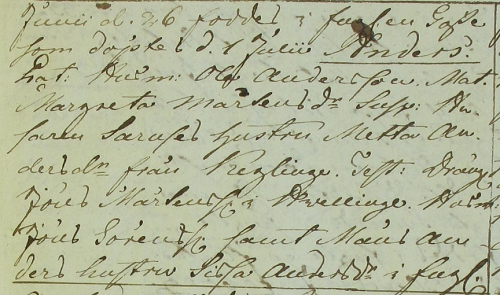 Junii d. 26 föddes i fuglen Gosse
som döptes d. 1 Julii Anders.
Pat: Husm: Ola Andersson. Mat.
Margreta Mårtens dr. Susp: Hu
saren hustru Metta An
ders dr från Keglinge. Test: Dräng
Jöns Mårtenss. i Hvellinge. Husm:
Jöns Görenss. samt Måns An
ders hustru Sissa Anders dr i fugl.